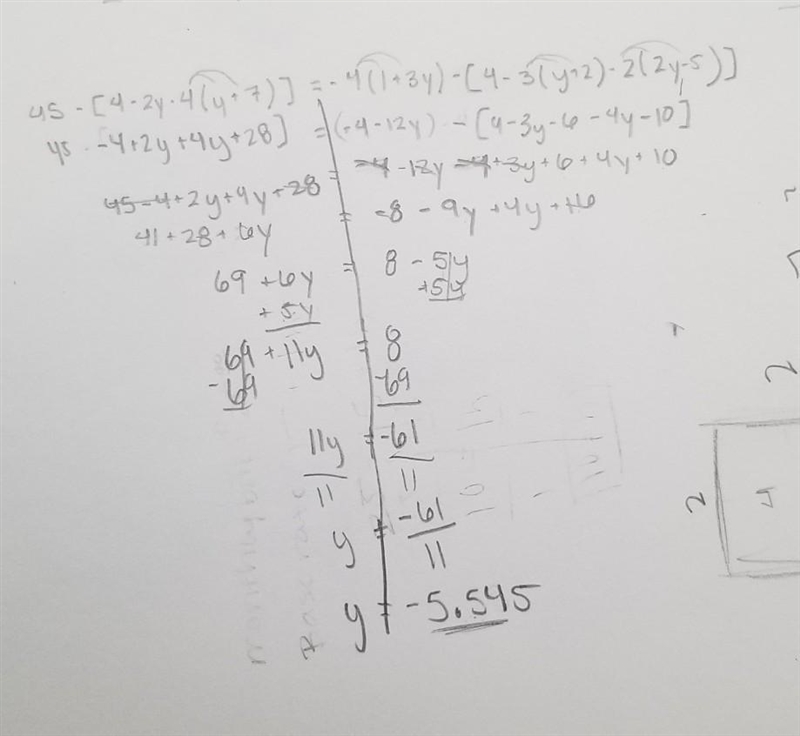 45 - [4-2y-4(y+7)] = -4(1+3y)-[4-3(y+2)-2(2y-5)]
45 -4+2y+4y+28] = (-4-12y) -[4-3y-6-4y-10]
45-4+2y+4y+28 = -4-12y-4+3y+6+4y+10
41+28+6y = -8-9y+4y+16
69 +6y = 8 - 5y
+ 5y +5y
69 +11y = 8
-69 -69
11y = -61
11 11
y = -61
11
y = -5.545
2 4